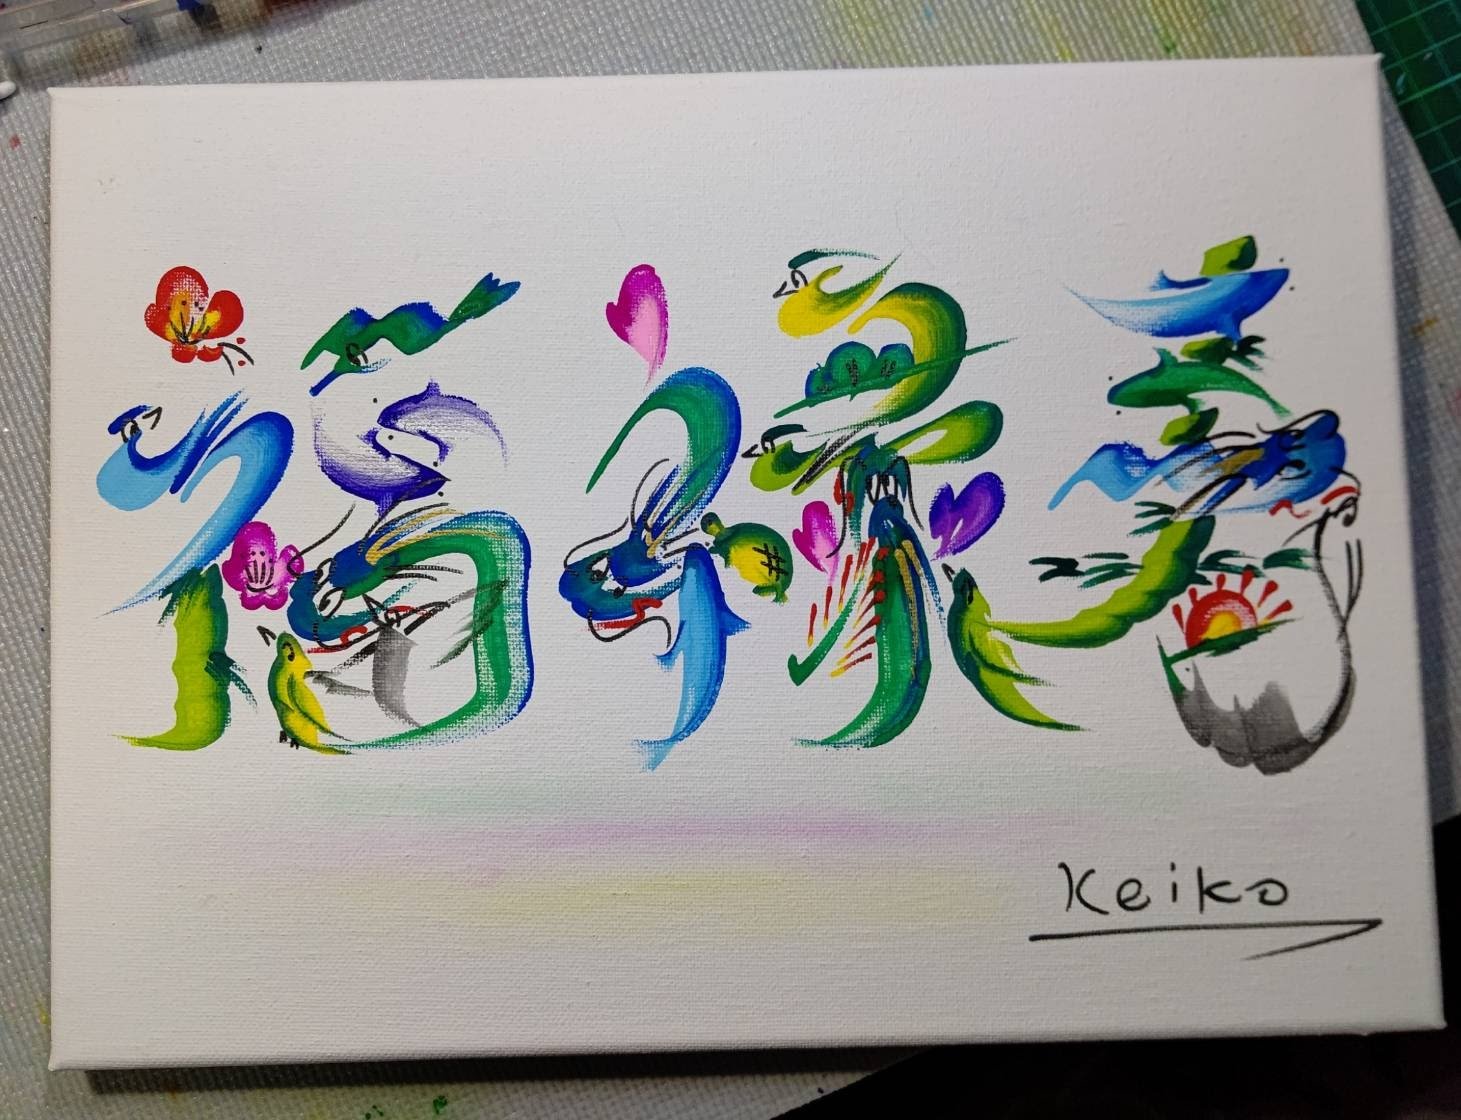 福禄寿
Keiko